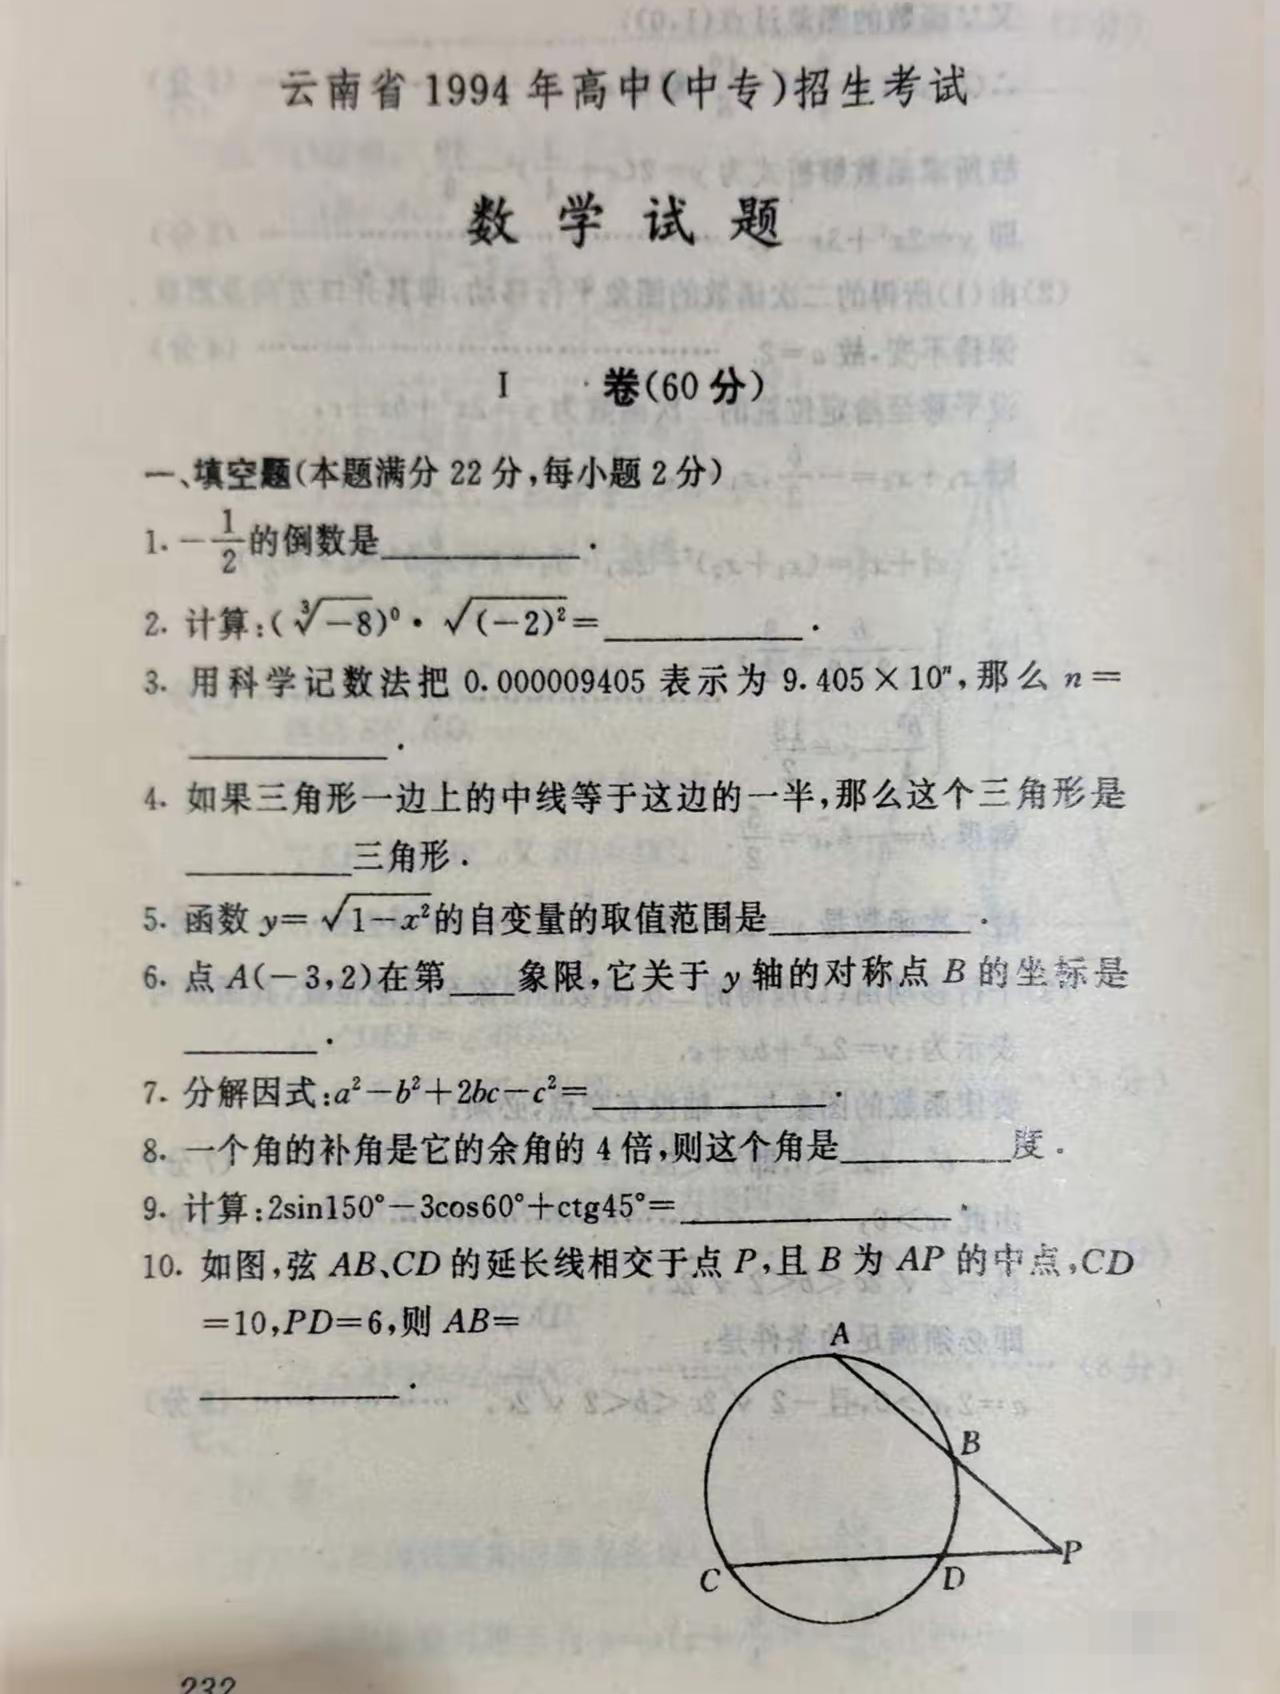 云南省1994年高中(中专)招生考试
数学试题
I 卷(60分)
一、填空题(本题满分22分,每小题2分)
1. -1/2的倒数是________.
2. 计算:(∛-8)⁰·√(-2)²=________.
3. 用科学记数法把0.000009405表示为9.405×10ⁿ,那么n=
________.
4. 如果三角形一边上的中线等于这边的一半,那么这个三角形是
________三角形.
5. 函数y=√1-x²的自变量的取值范围是________.
6. 点A(-3,2)在第___象限,它关于y轴的对称点B的坐标是
______.
7. 分解因式:a²-b²+2bc-c²=________.
8. 一个角的补角是它的余角的4倍,则这个角是________度.
9. 计算:2sin150°-3cos60°+ctg45°=________.
10. 如图,弦AB、CD的延长线相交于点P,且B为AP的中点,CD
=10,PD=6,则AB=
________.
A
B
P
C
D
232